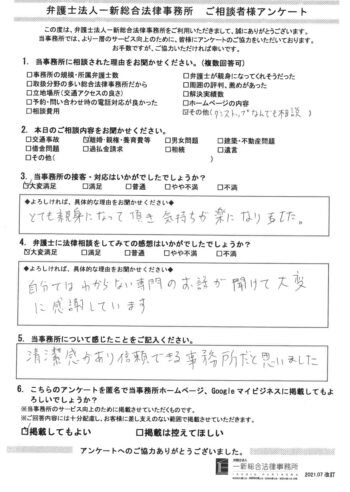 弁護士法人一新総合法律事務所　ご相談者様アンケート
この度は、弁護士法人一新総合法律事務所をご利用いただきまして、誠にありがとうございます。
当事務所では、より一層のサービス向上のために、皆様にアンケートのご協力をいただいております。
お手数ですが、ご協力いただければ幸いです。
1. 当事務所に相談された理由をお聞かせください。（複数回答可）
□事務所の規模・所属弁護士数　□弁護士が親身になってくれそうだった
□取扱分野の多い総合法律事務所だから　□周囲の評判、薦めがあった
□立地場所（交通アクセスの良さ）　□解決実績数
□予約・問い合わせ時の電話対応が良かった　□ホームページの内容
□相談費用　☑その他(ワンストップなんでも相談)
2. 本日のご相談内容をお聞かせください。
□交通事故　☑離婚・親権・養育費等　□男女問題　□建築・不動産問題
□借金問題　□過払金請求　□相続　□遺言
□その他(　)
3. 当事務所の接客・対応はいかがでしたでしょうか？
☑大変満足　□満足　□普通　□やや不満　□不満
◆よろしければ、具体的な理由をお聞かせください◆
とても親身になって頂き 気持ちが楽になりました。
4. 弁護士に法律相談をしてみての感想はいかがでしたでしょうか？
☑大変満足　□満足　□普通　□やや不満　□不満
◆よろしければ、具体的な理由をお聞かせください◆
自分ではわからない専門のお話が聞けて大変
に感謝しています
5. 当事務所について感じたことをご記入ください。
清潔感があり信頼できる事務所だと思いました
6. こちらのアンケートを匿名で当事務所ホームページ、Googleマイビジネスに掲載してもよ
ろしいでしょうか？
※当事務所のサービス向上のために掲載させていただくものです。
※ご回答内容には十分配慮し、お客様に差し支えのない範囲で掲載させていただきます。
☑掲載してもよい　□掲載は控えてほしい
アンケートへのご協力ありがとうございました。
弁護士法人
一新総合法律事務所
2021.07 改訂